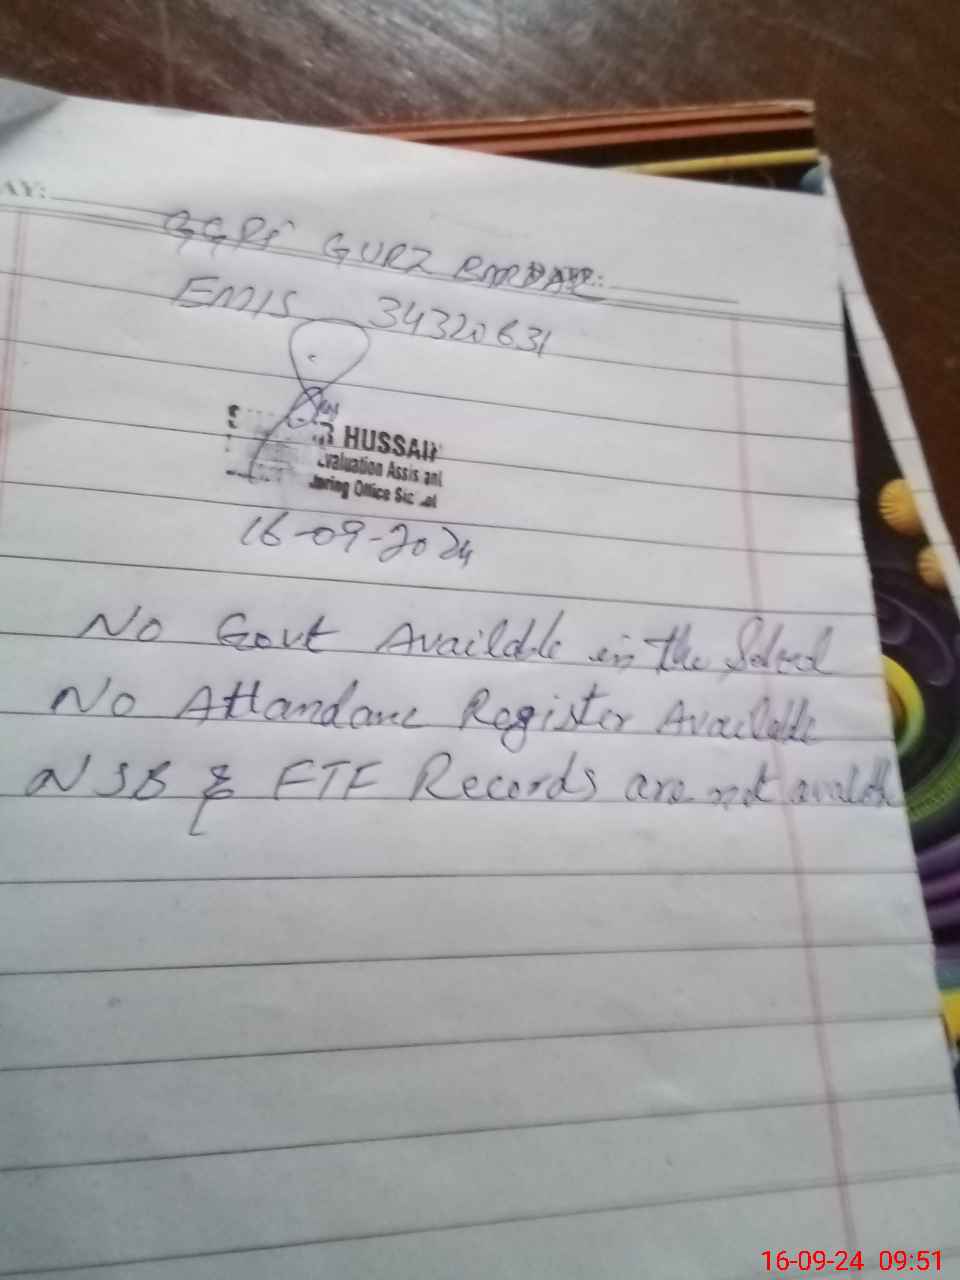 AY:
GGPS GURZ
EMIS 34320631
HUSSAIN
Evaluation Assistant
Office
16-09-2024
No Govt Available in the School
No Attandanc Register Available
NSB & FTF Records are not availabl
16-09-24 09:51